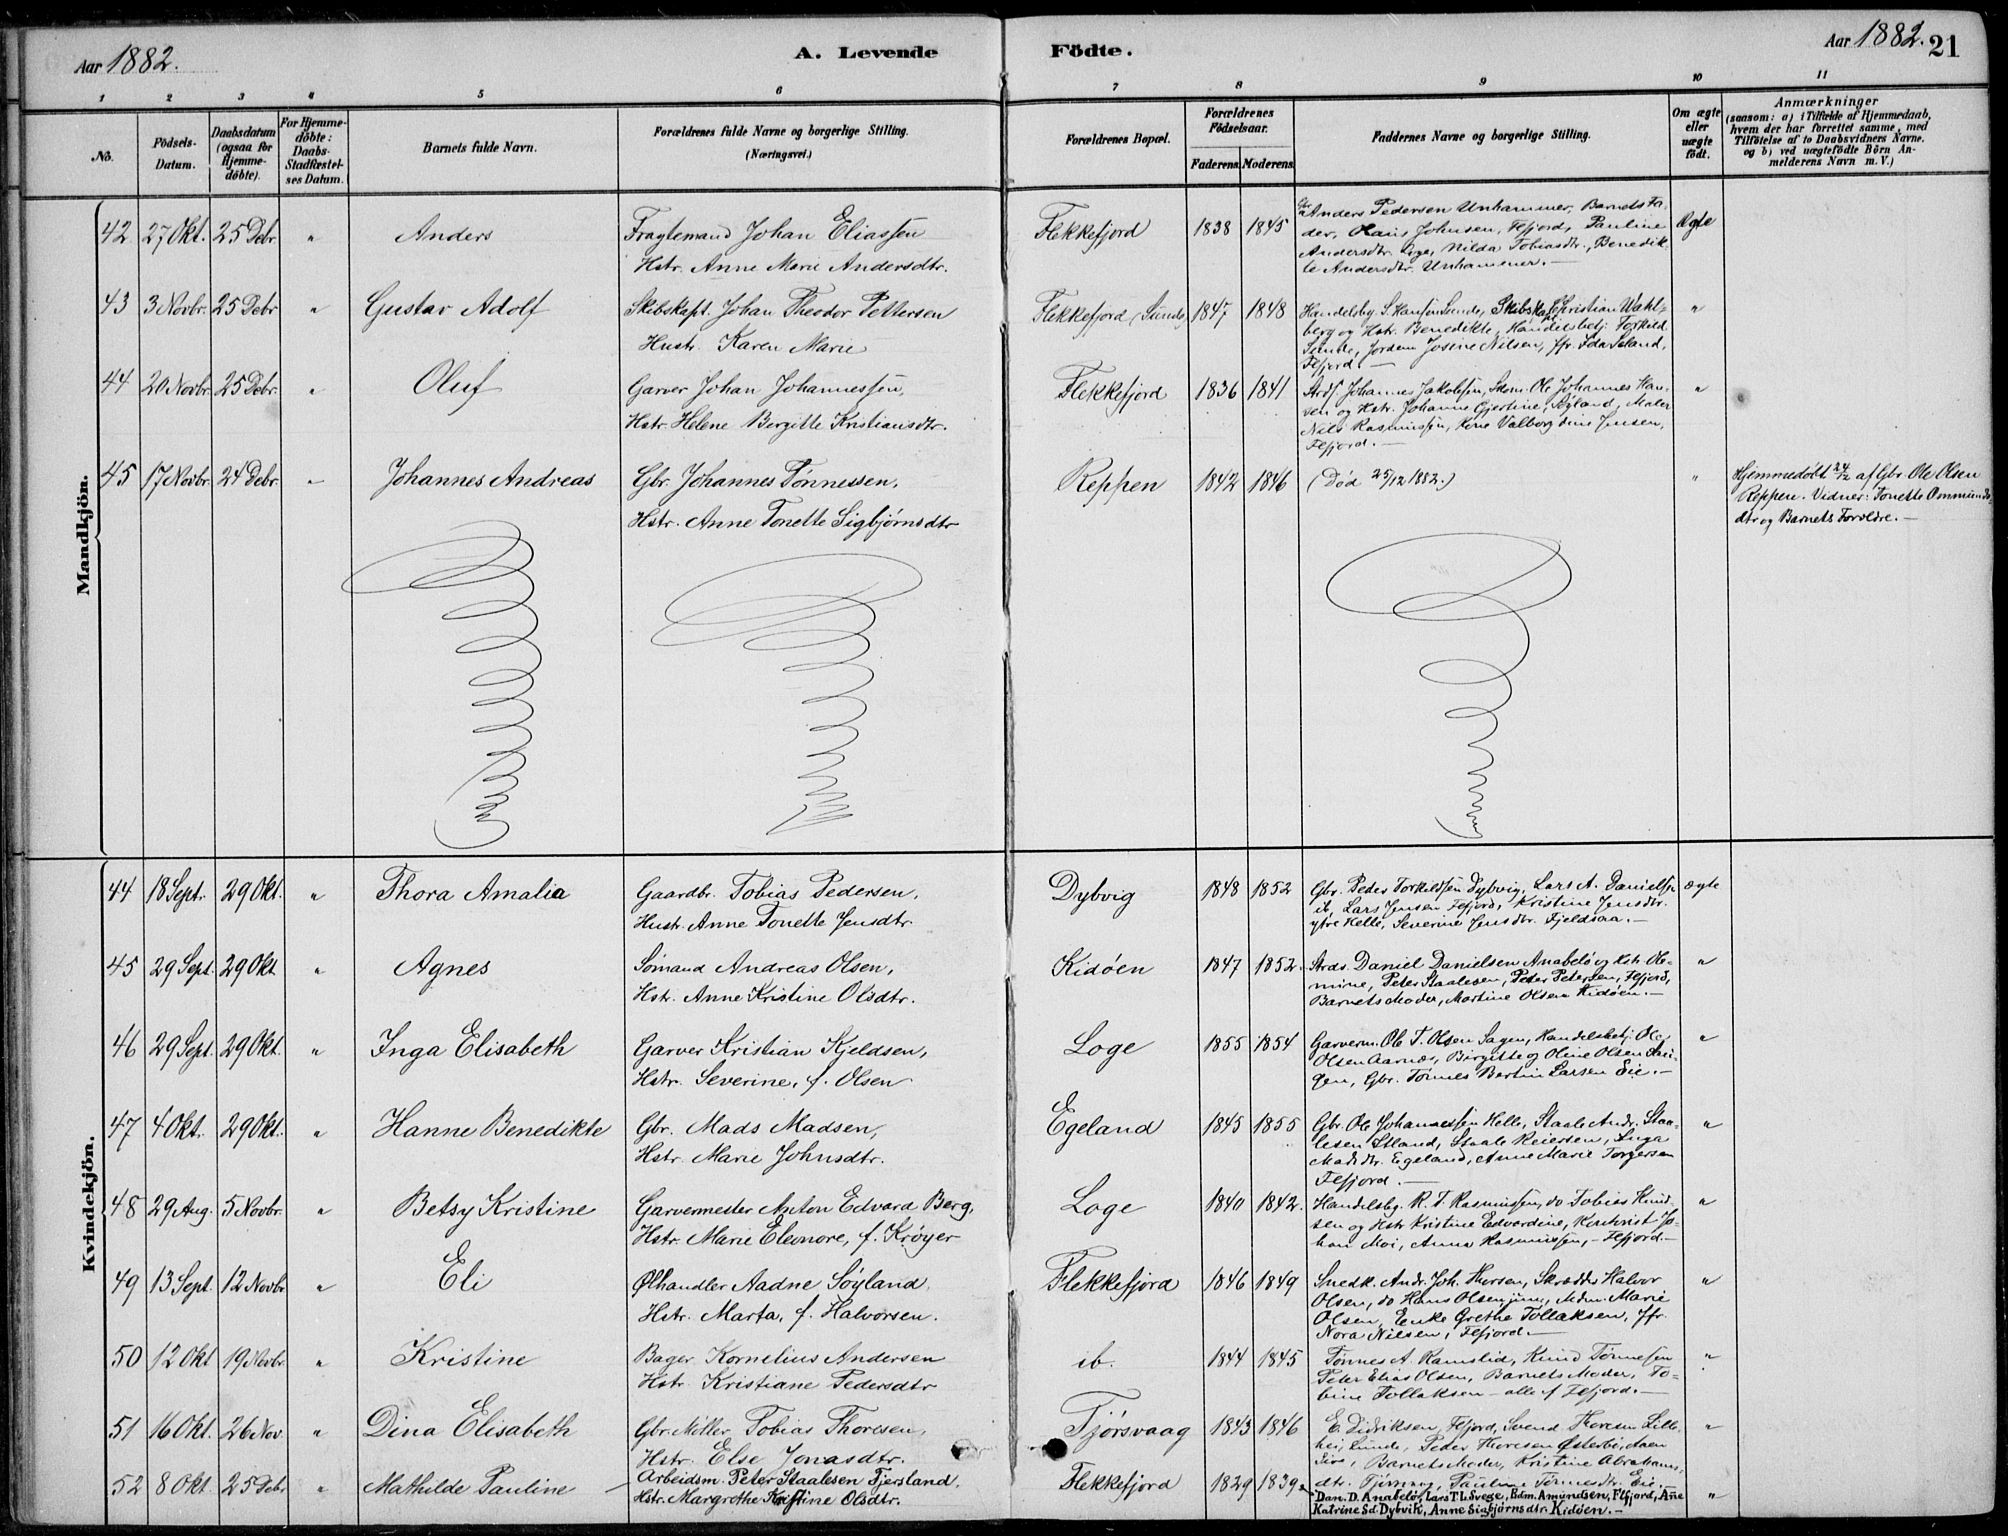 Aar 1882.
A. Levende Födte.
Aar 1882. 21
1 2 3 4 5 6 7 8 9 10 11
No.
Födsels-Datum.
Daabsdatum (ogsaa for Hjemme-döbte).
For Hjemme-döbte: Daabs-Stadfæstel-ses Datum.
Barnets fulde Navn.
Forældrenes fulde Navne og borgerlige Stilling. (Næringsvei.)
Forældrenes Bopæl.
Forældrenes Födselsaar.
Faderens. Moderens.
Faddernes Navne og borgerlige Stilling.
Om ægte eller uægte födt.
Anmærkninger
(saasom: a) i Tilfælde af Hjemmedaab,
hvem der har forrettet samme, med
Tilföielse af to Daabsvidners Navne,
og b) ved uægtefödte Börn An-
melderens Navn m. V.)
Mandkjön.
42 27 Okt. 25 Debr. " Anders
Fragtemand Johan Eliassen
Hstr. Anne Marie Andersdtr.
Flekkefjord 1838 1845
Gbr. Anders Pedersen Unhammer, Barnets Fa-
der, Hans Johnsen, Ffjord, Pauline
Andersdtr. Loge, Nilda Tobiasdtr., Benedik-
te Andersdtr. Unhammer.—
Ægte
43 3 Novbr. 25 Debr. " Gustav Adolf
Skibskapt. Johan Theodor Pettersen
Hustr. Karen Marie
Flekkefjord (Sunde) 1847 1848
Handelsbg S. Hansen Sunde, Skibskapt. Christian Wahl-
berg og Hstr. Benedikte, Handelsbetj. Torkild
Sunde, Jordem. Josine Nilsen, Jfr. Ida Seland,
Ffjord.—
"
44 20 Novbr. 25 Debr. " Oluf
Garver Johan Johannessen,
Hstr. Helene Bergitte Kristiansdtr.
Flekkefjord 1836 1841
Strds. Johannes Jakobsen, Skom. Ole Johannes Han-
sen og Hstr. Johanne Gjertine, Söyland, Maler
Nils Rasmussen, Kone Valborg Jensen,
Ffjord.—
"
45 17 Novbr. 24 Debr. " Johannes Andreas
Gbr. Johannes Tønnessen,
Hstr. Anne Tonette Sigbjørnsdtr.
Reppen 1842 1846
(Død 25/12 1882.)
"
Hjemmedøbt 24/12 af Gbr. Ole Olsen
Reppen. Vidner: Tonette Ommunds-
dtr og Barnets Forældre.—
Kvindekjön.
44 18 Sept. 29 Okt. " Thora Amalia
Gaardbr. Tobias Pedersen,
Hustr. Anne Tonette Jensdtr.
Dybvig 1848 1852
Gbr. Peder Torkildsen Dybvig, Lars A. Danielsen
ib, Lars Jensen Ffjord, Kristine Jensdtr.
ytre Helle, Severine Jensdtr. Fjeldsaa.—
ægte
45 29 Sept. 29 Okt. " Agnes
Sømand Andreas Olsen,
Hstr. Anne Kristine Olsdtr.
Kidøen 1847 1852.
Strds. Daniel Danielsen Anabelø og Hstr. Ol-
mine, Peter Staalesen, Peter Petersen, Ffjord,
Barnets Moder, Martine Olsen Kidøen.—
"
46 29 Sept. 29 Okt. " Inga Elisabeth
Garver Kristian Kjeldsen,
Hstr. Severine, f. Olsen
Loge 1855 1854
Garverm. Ole T. Olsen Sagen, Handelsbetj. Ole
Olsen Aarnæs, Birgitte og Oline Olsen Sa-
gen, Gbr. Tønnes Bertin Larsen Eie.—
"
47 4 Okt. 29 Okt. " Hanne Benedikte
Gbr. Mads Madsen,
Hstr. Marie Johnsdtr.
Egeland 1845 1855
Gbr. Ole Johannessen Helle, Staale Andr. Staa-
lesen Stland, Staale Reiersen, Inga
Madsdtr. Egeland, Anne Marie Torgersen
Ffjord.—
"
48 29 Aug. 5 Novbr. " Betsy Kristine
Garvermester Anton Edvard Berg,
Hstr. Marie Eleonore, f. Krøyer
Loge 1840 1842.
Handelsbg. R. T. Rasmussen, do Tobias Knud-
sen og Hstr Kristine Edvardine, Kontorist Jo-
han Moi, Anna Rasmussen,- Ffjord.—
"
49 13 Sept. 12 Novbr. " Eli
Ølhandler Aadne Søyland,
Hstr. Marta, f. Halvorsen.
Flekkefjord 1846 1849
Snedk. Andr. Joh. Thorsen, Skrædder Halvor
Olsen, do Hans Olsen jun., Mdm. Marie
Olsen, Enke Grethe Tollaksen, Jfr.
Nora Nilsen, Ffjord.—
"
50 12 Okt. 19 Novbr. " Kristine
Bager Kornelius Andersen
Hstr. Kristiane Pedersdtr
ib. 1844 1845
Tønnes A. Ramslid, Knud Tønnesen
Peter Elias Olsen, Barnets Moder, To-
bine Tollaksen - alle af Ffjord.—
"
51 16 Okt. 26 Nov. " Dina Elisabeth
Gbr. Möller Tobias Thoresen,
Hstr. Else Jonasdtr.
Tjørsvaag 1843 1846
E. Didriksen, Ffjord, Svend Thoresen Lille-
hei, Sunde, Peder Thoresen Østerbø, Aaen
Sire, Barnets Moder, Kristine Abrahams-
dtr. Tjørsvaag, Pauline Tønnesdtr. Eie.—
"
52 8 Okt. 25 Debr. " Mathilde Pauline
Arbeidsm. Peter Staalesen Tjersland,
Hstr. Margrethe Kristine Olsdtr.
Flekkefjord 1829 1839
Dan. D. Anabelø, Lars T. L. Svege, Bdm. Amundsen, Flfjord, Ane
Katrine Sd. Dybvik, Anne Sigbjørnsdtr. Kidöen.—
"